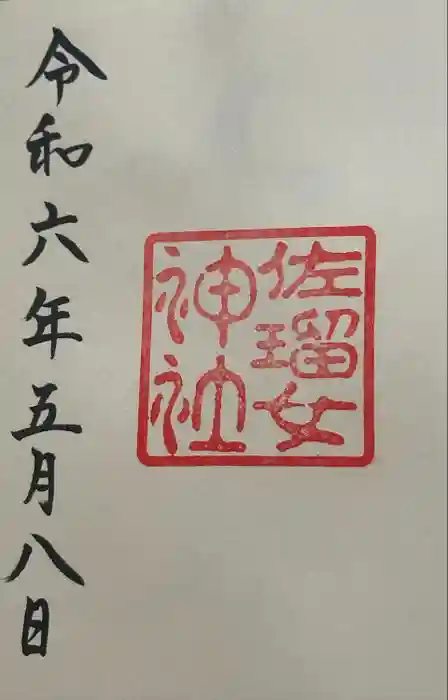 佐瑠女
神社
令和六年五月八日